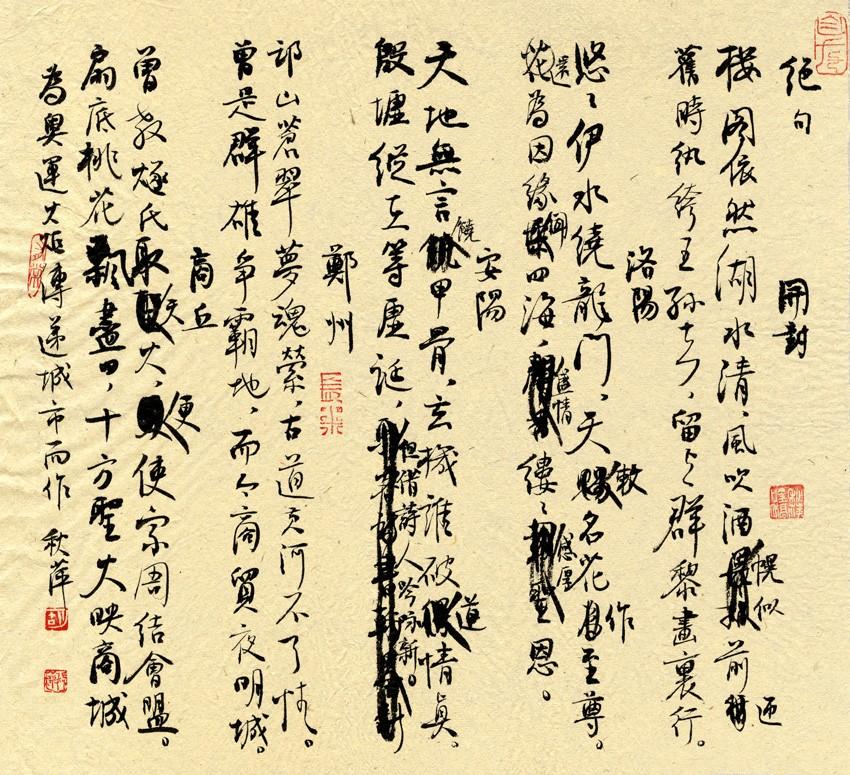 絕句
開封
楼阁依然湖水清，風吹酒幌似前迎
舊時紈絝王孫去，留与群黎畫裏行。
洛陽
悠〻伊水繞龍門，天教名花作至尊。
還為因緣聞四海，道情縷〻感皇恩。
安陽
天地無言饒甲骨，玄機誰破道情真。
殷墟縱 等虛誕，但借詩人吟咏新。
鄭州
邙山蒼翠夢魂縈，古道黄河不了情。
曾是群雄争霸地，而今商貿夜明城。
商丘
曾教燧氏取天火，便使宗周結會盟。
扇底桃花飄盡日，十方聖火映商城
為奥運火炬傳遞城市而作 秋萍